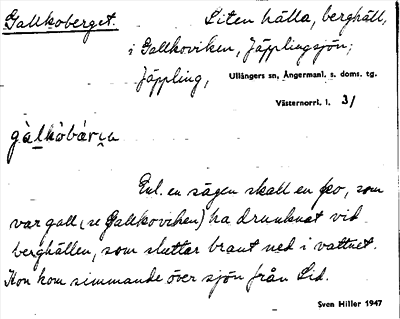 Gallkoberget. Liten hälla, berghäll,
i Gallkoviken, Jäpplingsjön;
Jäppling, Ullångers sn, Ångermanl. s. doms. tg.
Västernorrl. l. 31
Enl. en sägen skall en ko, som
var gall, (se Gallkoviken) ha drunknat vid
berghällen, som sluttar brant ned i vattnet.
Hon kom simmande över sjön från Lid.
Sven Hiller 1947